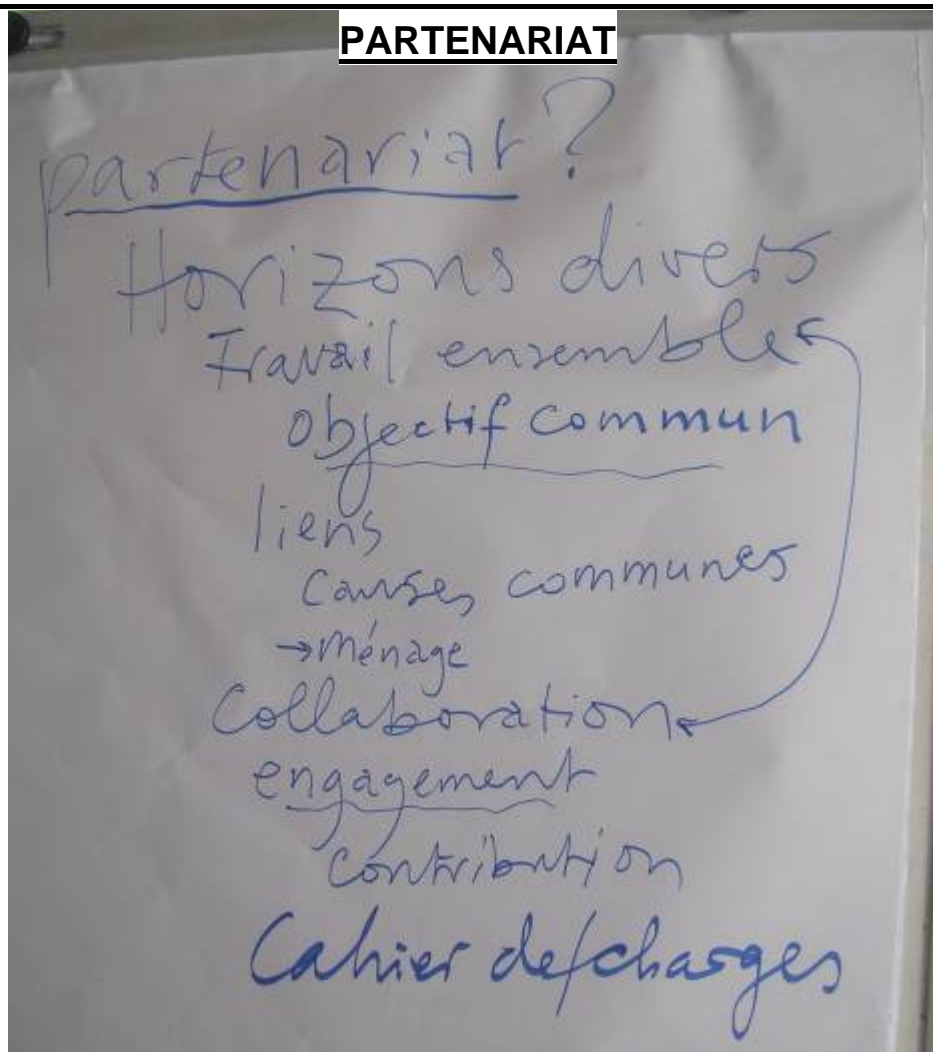 PARTENARIAT
partenariat?
Horizons divers
Travail ensemble
Objectif commun
liens
Causes communes
→ménage
Collaboration
engagement
Contribution
Cahier de/charges